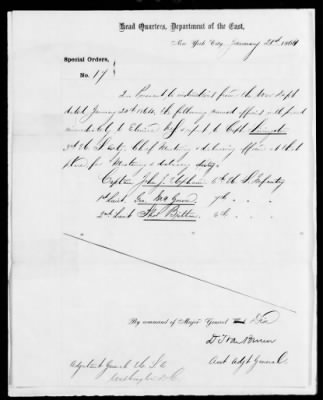 Head Quarters, Department of the East,
New York City, January 21st 1864
Special Orders,
No. 17
In Pursuant to instructions from the War Dept
dated January 20th 1864, the following named officers will proceed
immediately to Elmira N.Y. & report to Capt
3rd U.S. Arty Chief Mustering & disbursing officer at that
place for Mustering & disbursing duty.
Captain John J. Upham 6th U.S. Infantry
1st Lieut. Geo. 7th " "
2nd Lieut 6th " "
By command of Major General Dix
D. T. Van Buren
Asst Adjt General
Adjutant General U.S.A
Washington D.C.